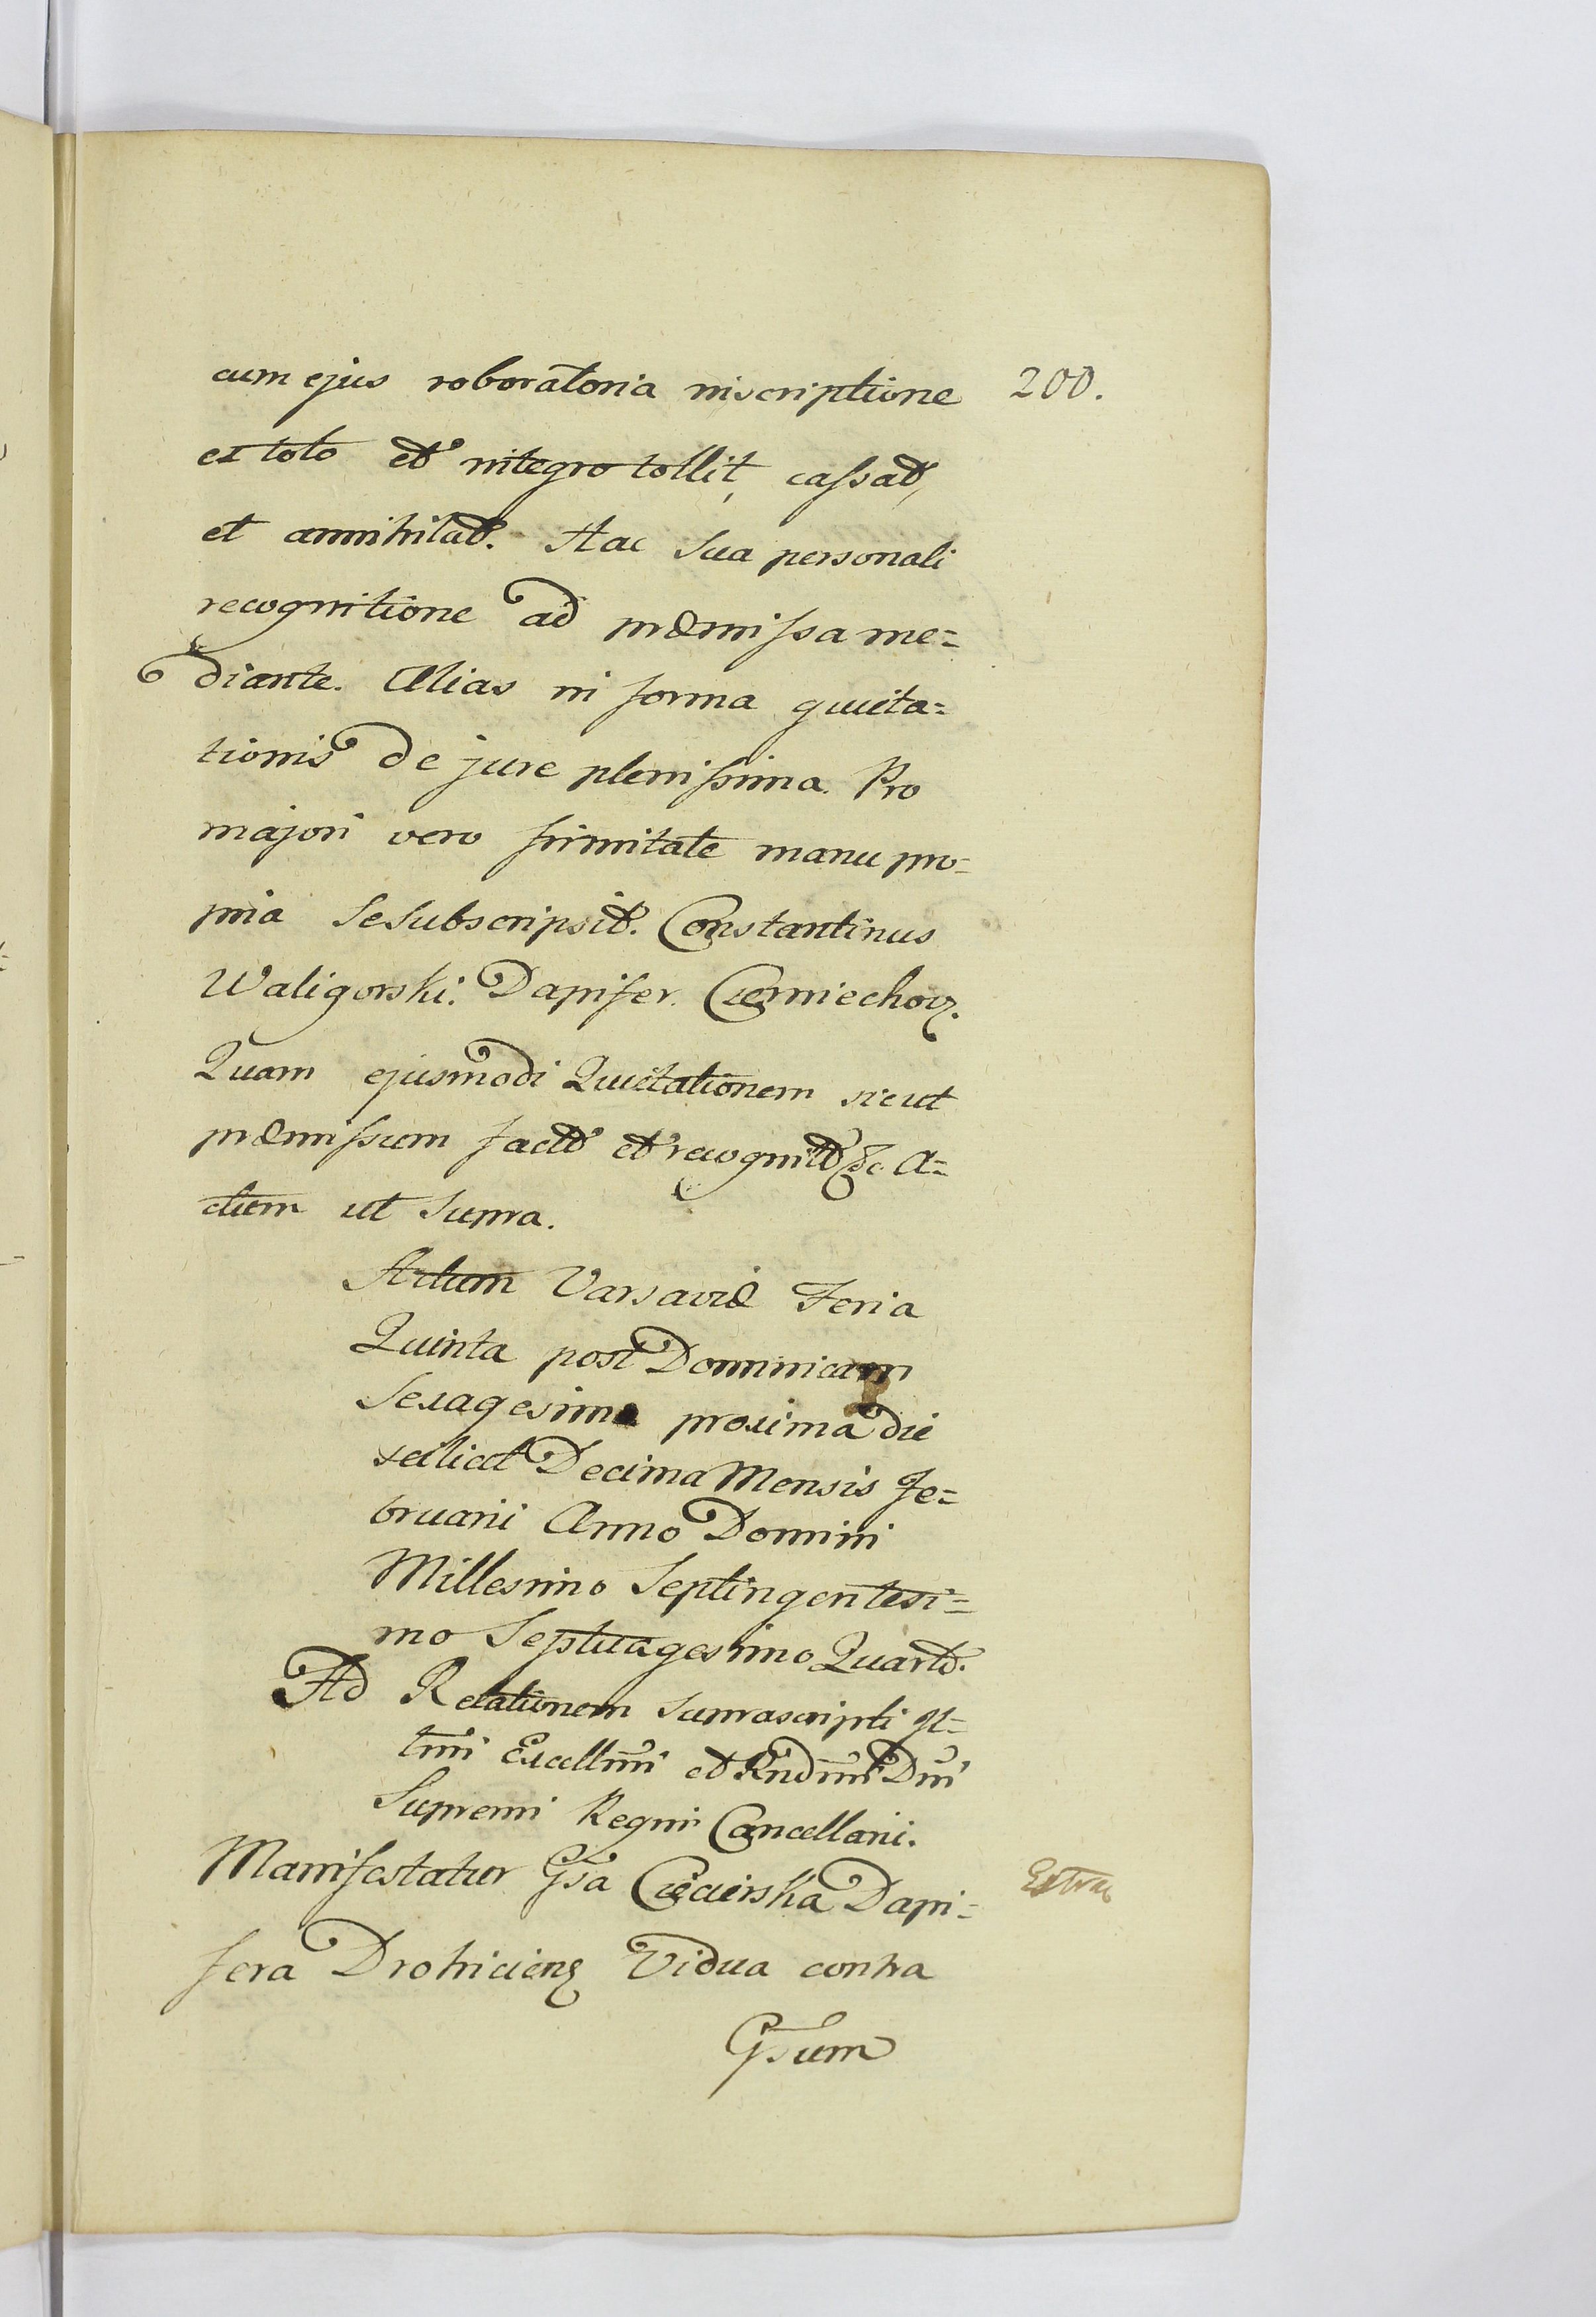 cum ejus roboratoria inscriptione 200.
ex toto et integro tollit, cassat,
et annihilat. Hac sua personali
recognitione ad præmissa me=
diante. Alias in forma quieta=
tionis de jure plenissima. Pro
majori vero firmitate manu pro=
pria se subscripsit. Constantinus
Waligorski. Dapifer. Czerniechov.
Quam ejusmodi Quietationem sicut
præmissum fact et recognit &c A=
ctum ut supra.
Actum Varsaviæ Feria
Quinta post Dominicam
Sexagesimæ proxima die
scilicet Decima Mensis Fe=
bruarii Anno Domini
Millesimo Septingentesi=
mo Septuagesimo Quarto.
Ad Relationem suprascripti Il=
lmi Excellmi et Rndmi Dni
Supremi Regni Cancellarii.
Manifestatur Gsa Ciecierska Dapi= Extrac
fera Drohiciens Vidua contra
Gsum